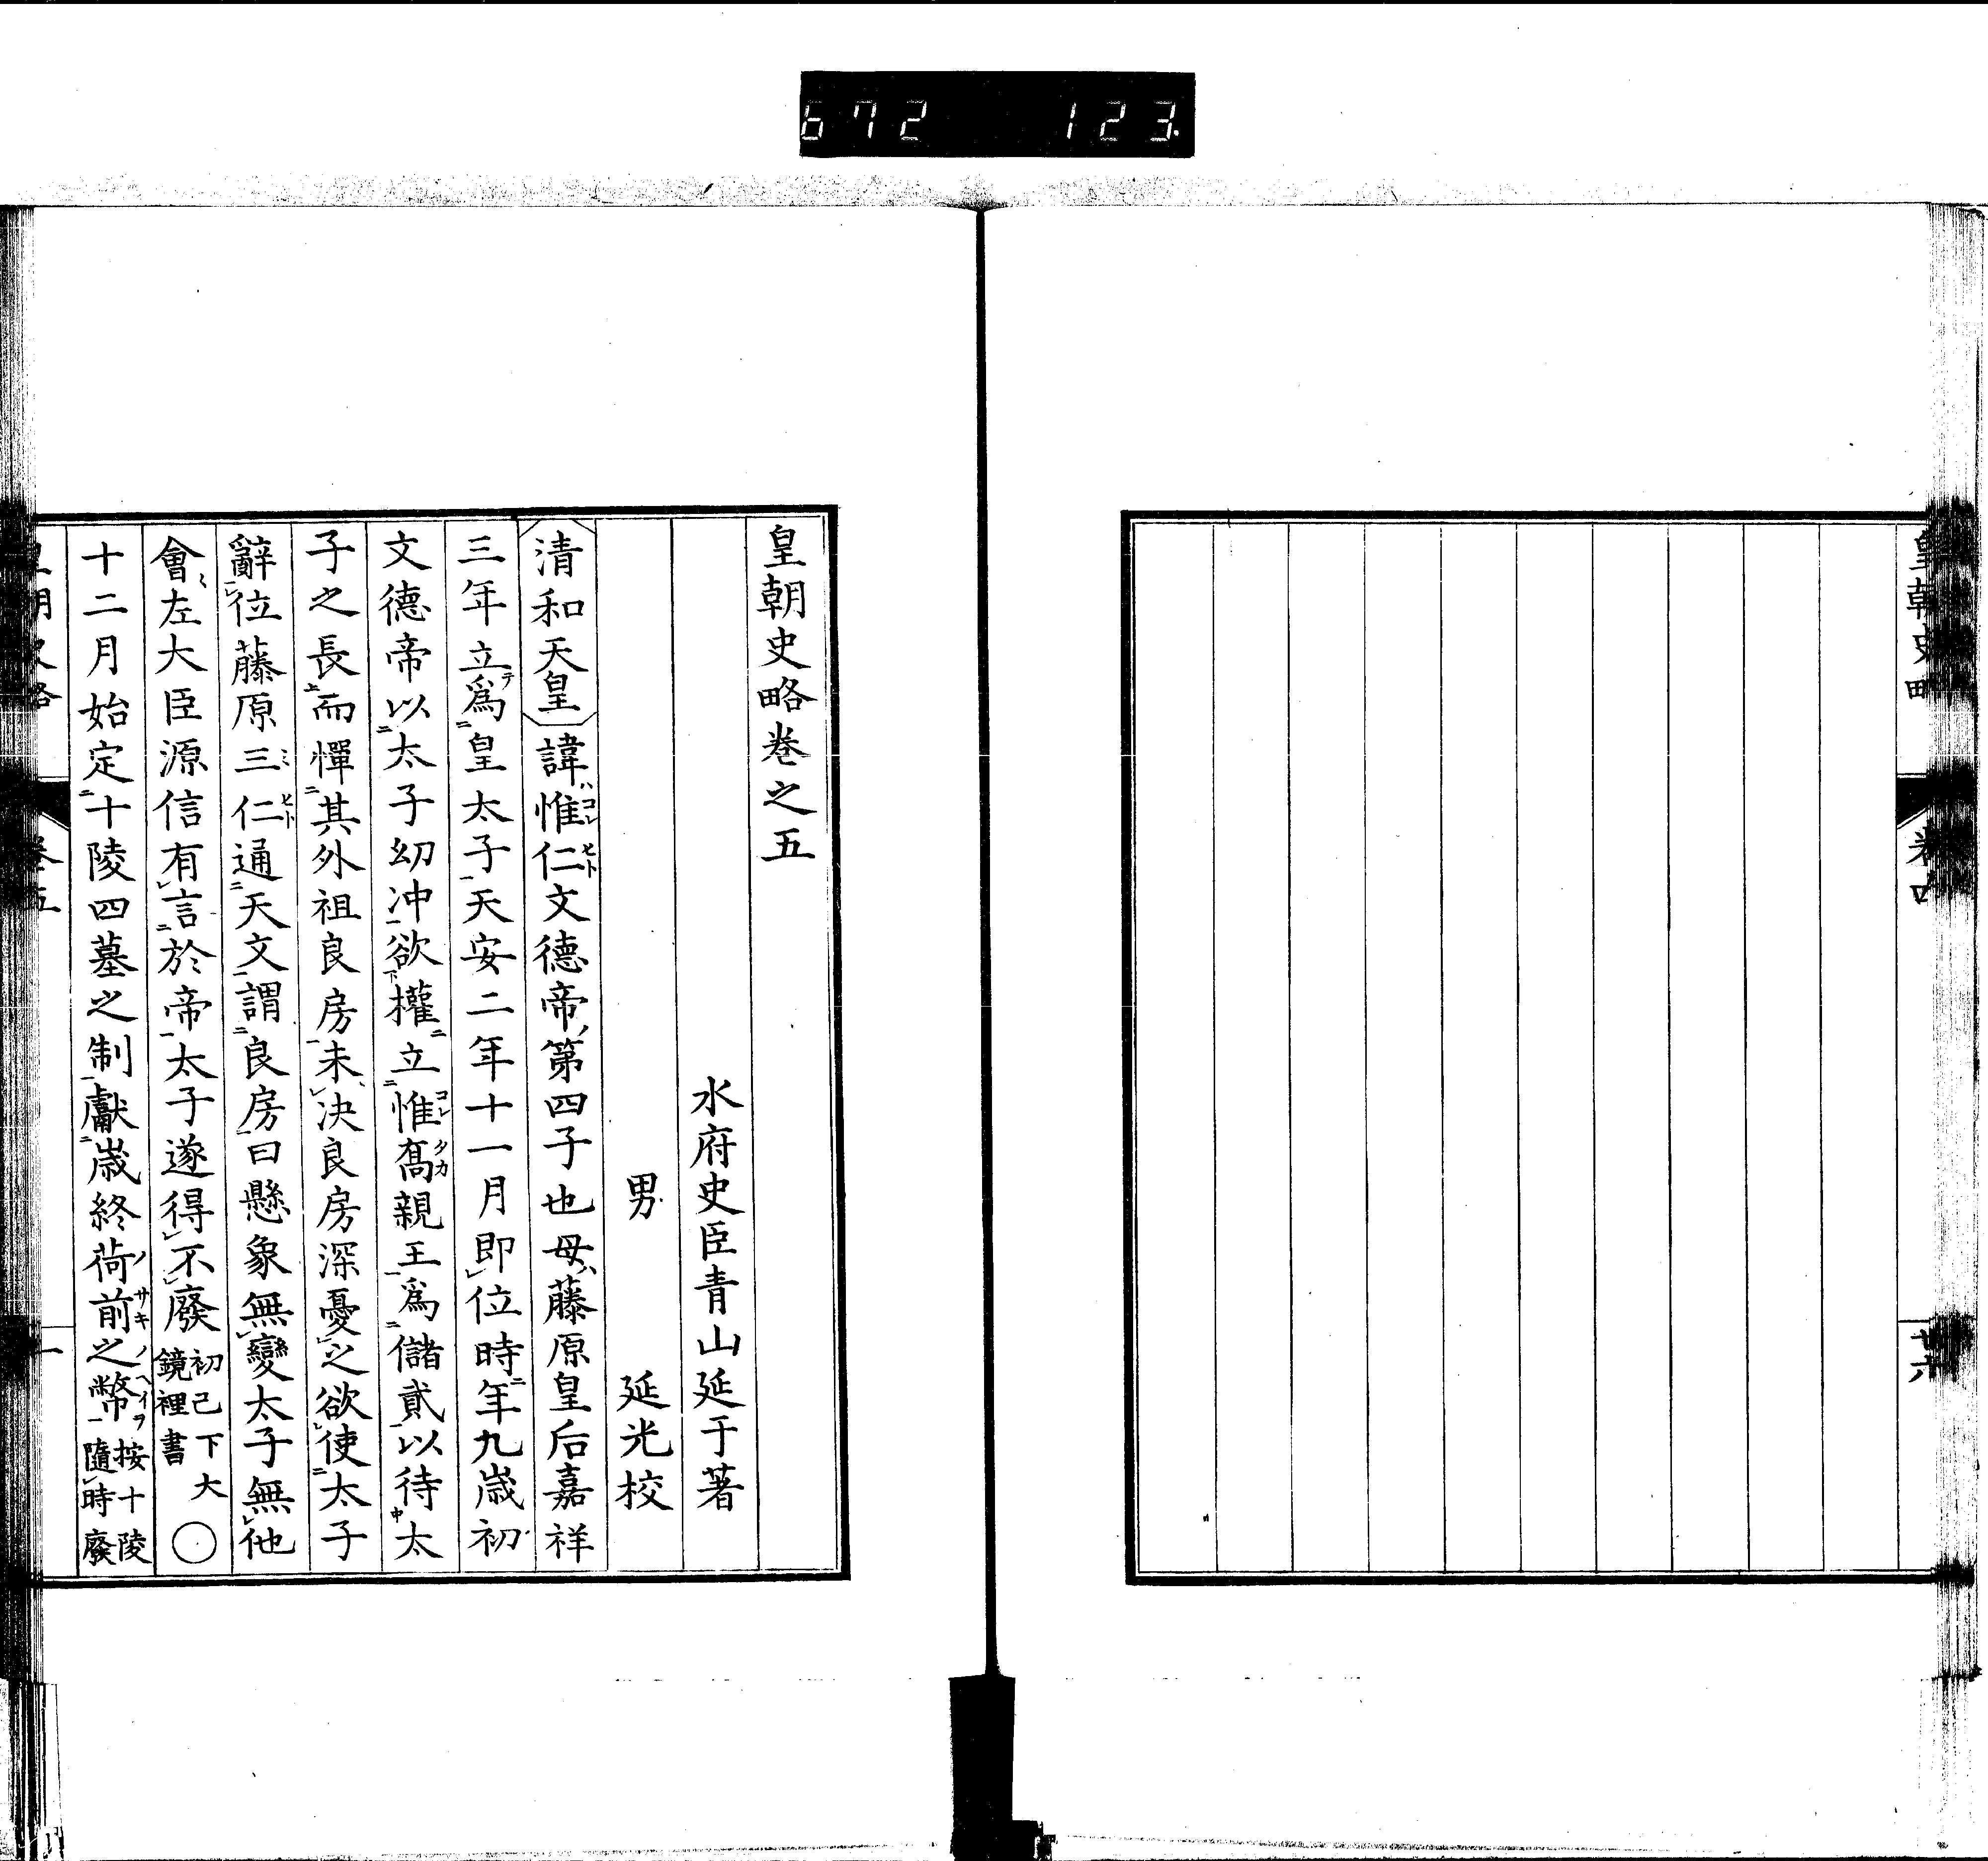 672 123
皇朝史略
卷四
廿六
皇朝史略卷之五
水府史臣青山延于著
男 延光校
清和天皇諱惟仁文德帝第四子也母藤原皇后嘉祥
三年立爲皇太子天安二年十一月即位時年九歳初
文德帝以太子幼冲欲權立惟髙親王爲儲貳以待太
子之長而憚其外祖良房未决良房深憂之欲使太子
辭位藤原三仁通天文謂良房曰懸象無變太子無他
會左大臣源信有言於帝太子遂得不廢初已下大鏡裡書○
十二月始定十陵四墓之制獻歳終荷前之幣按十陵隨時廢
皇朝史略
卷五
一